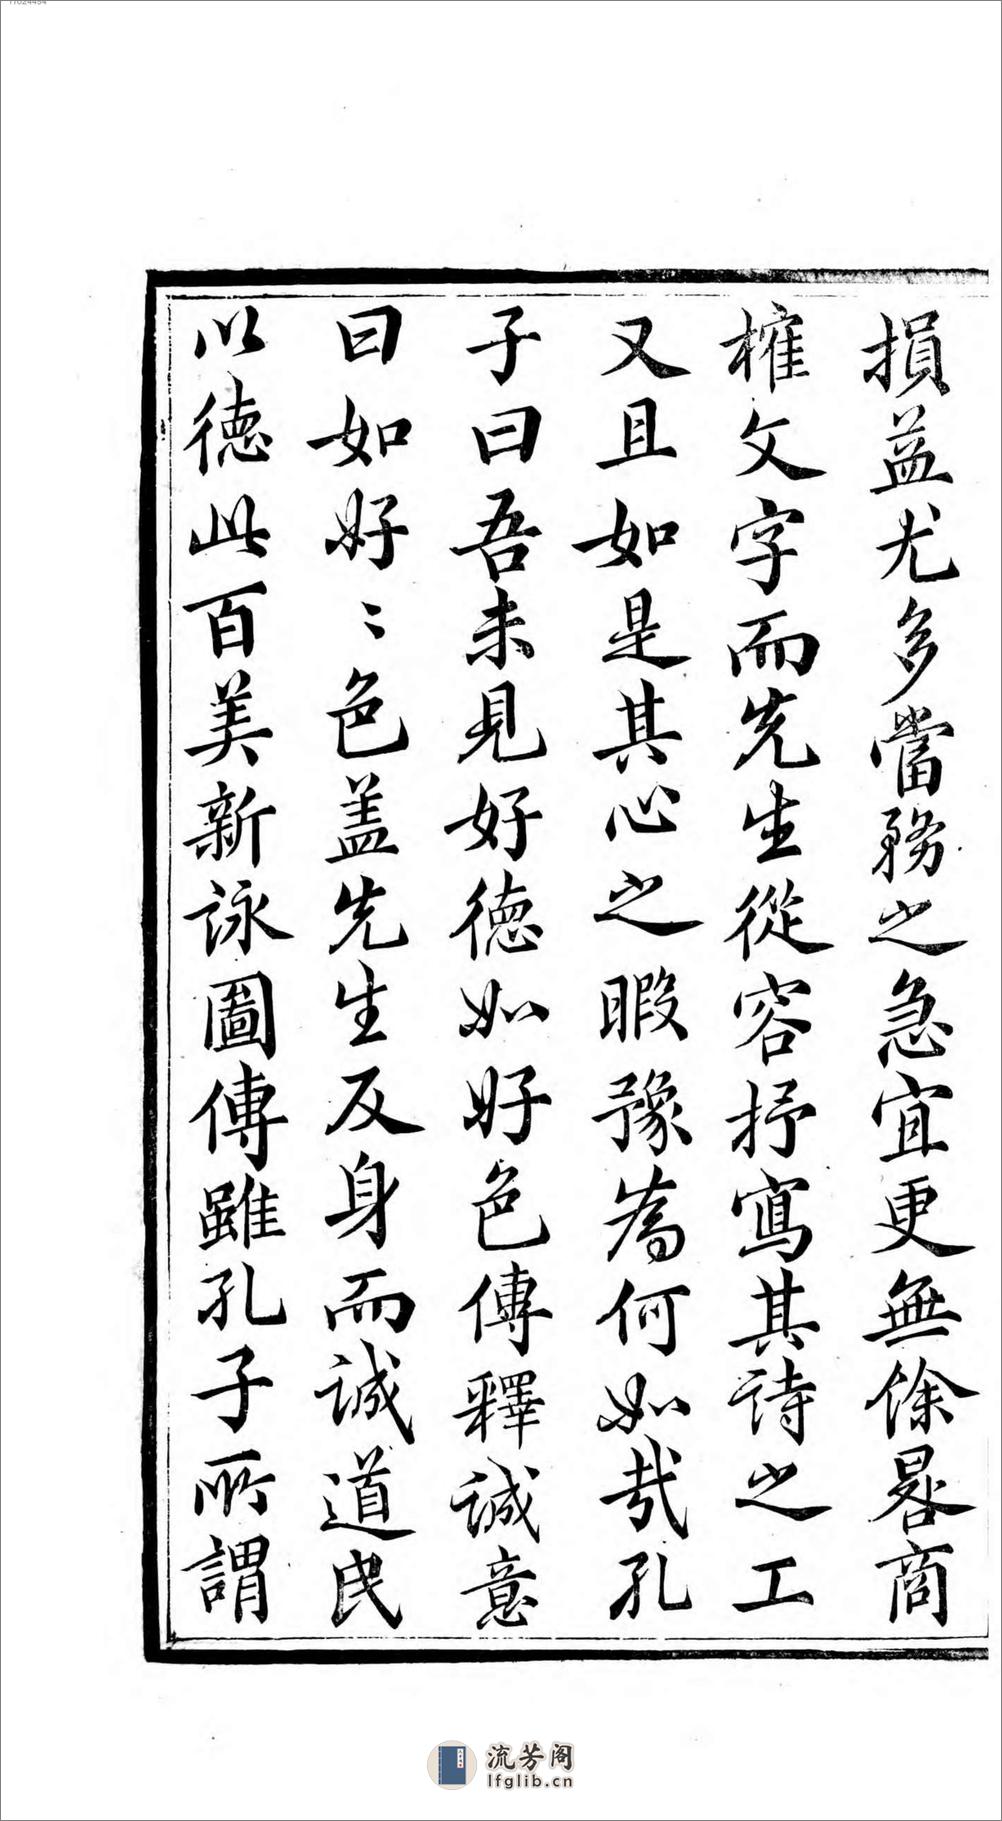 損益尤多當務之急宜更無餘晷商
榷文字而先生從容抒寫其詩之工
又且如是其心之暇豫為何如哉孔
子曰吾未見好德如好色傳釋誠意
曰如好〻色蓋先生反身而誠道民
以德此百美新詠圖傳雖孔子所謂
流芳阁
lfglib.cn